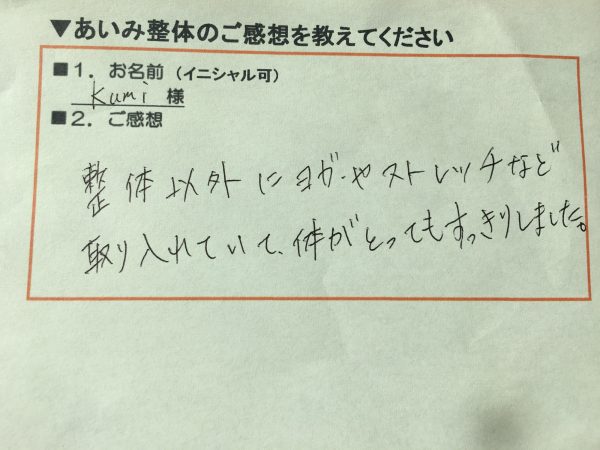 ▼あいみ整体のご感想を教えてください
■1．お名前（イニシャル可）
Kumi 様
■2．ご感想
整体以外にヨガやストレッチなど
取り入れていて、体がとってもすっきりしました。